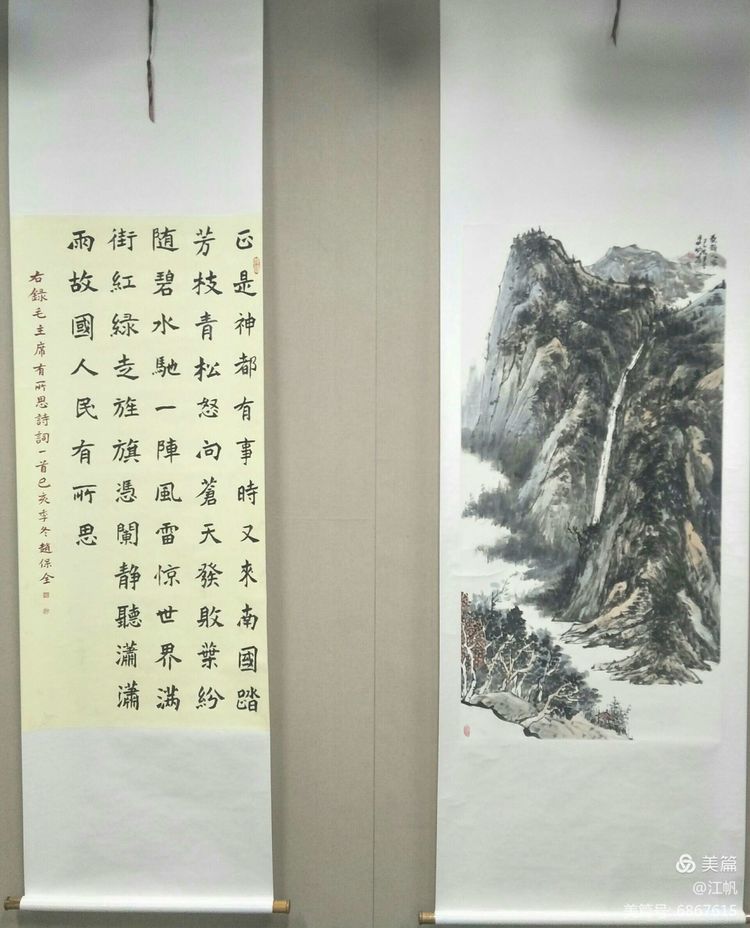 正是神都有事時又來南國踏
芳枝青松怒向蒼天發敗葉紛
随碧水馳一陣風雷惊世界满
街紅緑走旌旗憑闌静聽瀟瀟
雨故國人民有所思
右録毛主席有所思詩詞一首己亥季冬趙保全
美篇
@江帆
美篇号: 6867615